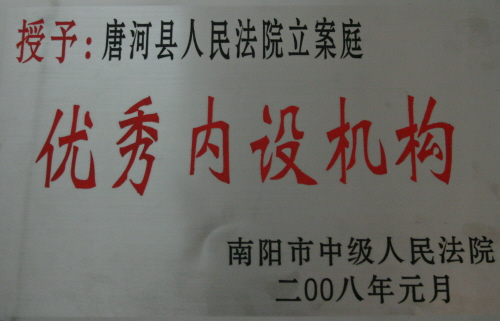 授予：唐河县人民法院立案庭
优秀内设机构
南阳市中级人民法院
二00八年元月